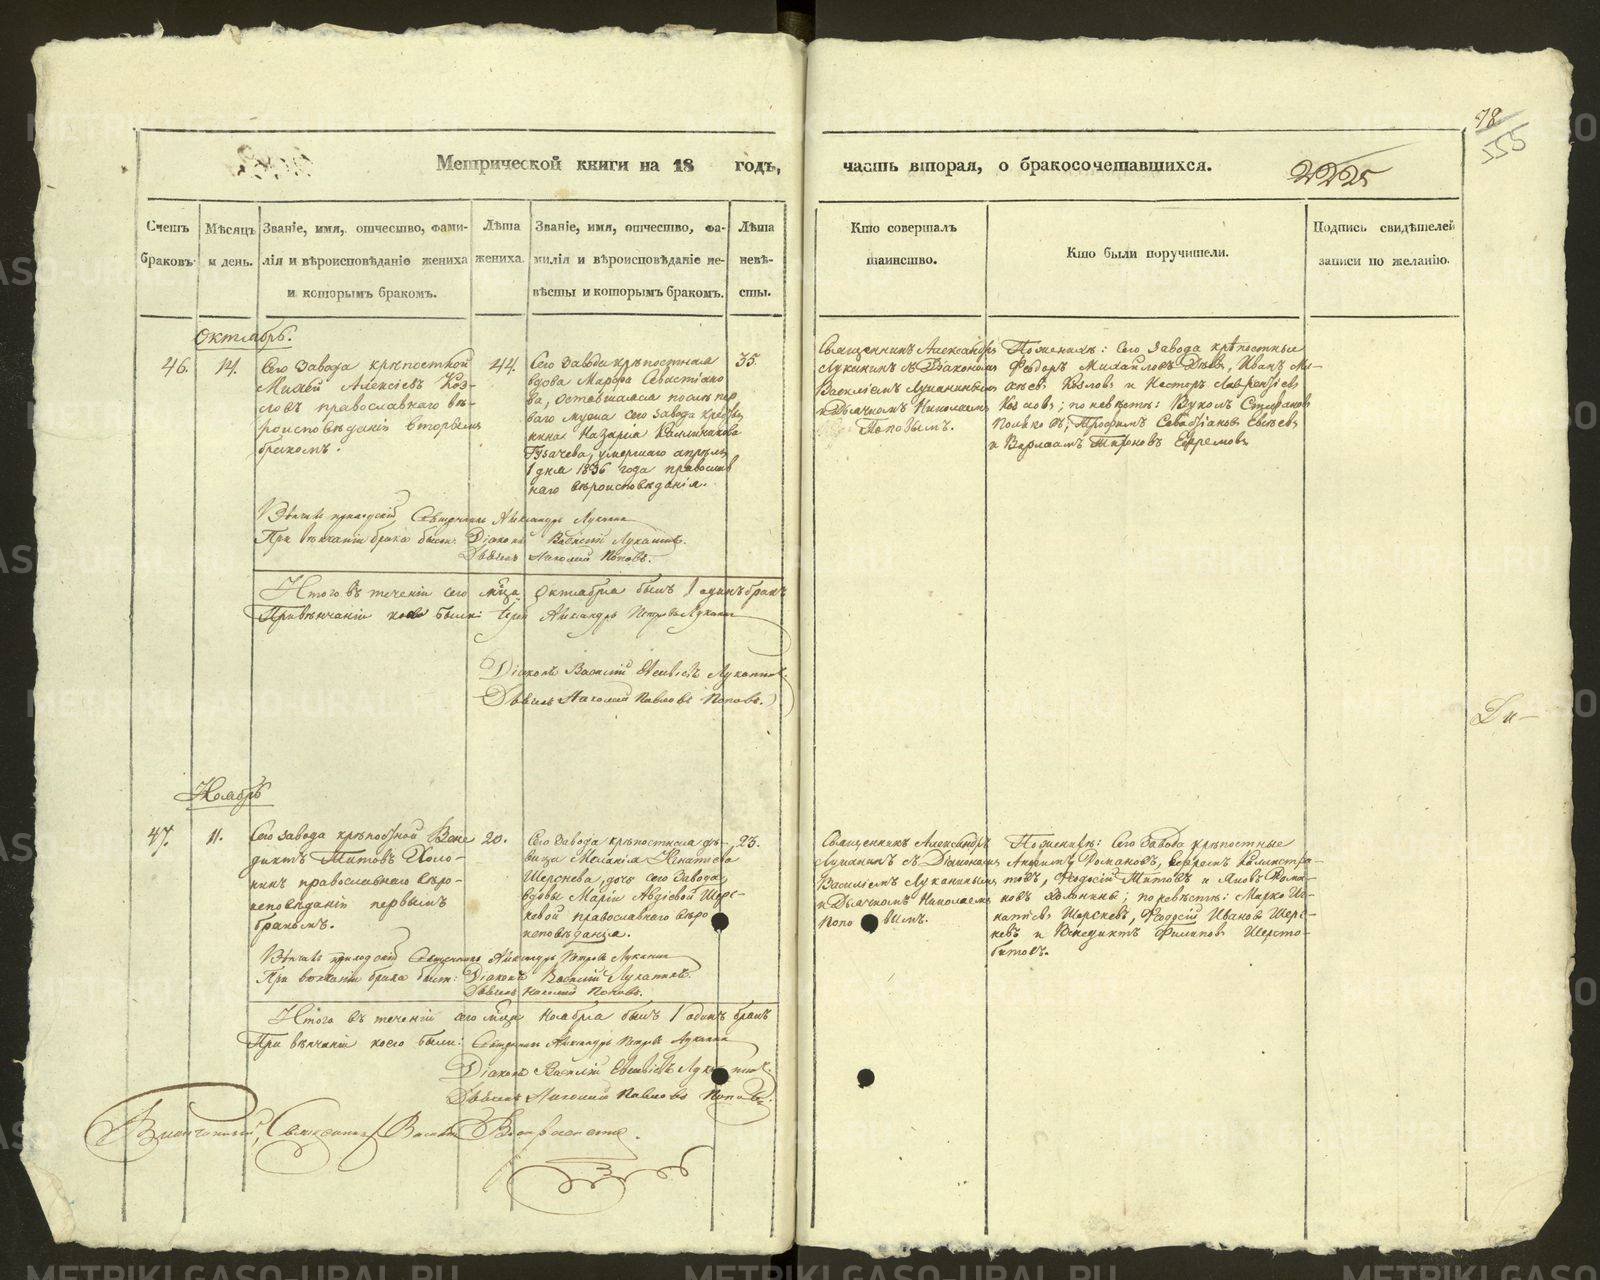 78
555
Метрической книги на 18 годъ,
часть вторая, о бракосочетавшихся.
2225
Счетъ браковъ.
Мѣсяцъ и день.
Званіе, имя, отчество, фами-
лія и вѣроисповѣданіе жениха
и которымъ бракомъ.
Лѣта
жениха.
Званіе, имя, отчество, фа-
милія и вѣроисповѣданіе не-
вѣсты и которымъ бракомъ.
Лѣта
невѣ-
сты.
Кто совершалъ
таинство.
Кто были поручители.
Подпись свидѣтелей
записи по желанію.
Октябрь.
46.
14.
Сего завода крѣпостной
Алексіевъ Коз-
ловъ православнаго вѣ-
роисповѣданія вторымъ
бракомъ.
44.
Сего завода крѣпостная
вдова Марфа Севастіано
ва, оставшаяся послѣ пер
ваго мужа сего завода
Назарія
умершаго апрѣля
1 дня 1836 года православ
наго вѣроисповѣданія.
35.
Священникъ Александръ
Луканинъ съ Діакономъ
Василіемъ Луканинымъ
и Дьячкомъ Николаемъ
Поповымъ.
По женихѣ: Сего завода крѣпостные
Ѳедоръ Михайловъ Иванъ
Козловъ и Несторъ Лаврентіевъ
Козловъ; по невѣстѣ: Вуколъ Стефановъ
Трофимъ
и Варлаамъ Ефремовъ
Вѣнчалъ приходскій Священникъ Александръ Луканинъ
При вѣнчаніи брака были: Діаконъ Василій Луканинъ.
Дьячекъ Николай Поповъ.
Итого въ теченіи сего мѣсяца Октября былъ 1 одинъ бракъ
При вѣнчаніи коего были: Іерей Александръ Петровъ Луканинъ
Діаконъ Василій Луканинъ
Дьячекъ Николай Павловъ Поповъ.
Ноябрь
47.
11.
Сего завода крѣпостной Вене
диктъ Титовъ Холо-
нинъ православнаго вѣро-
исповѣданія первымъ
бракомъ.
20.
Сего завода крѣпостная дѣ-
вица Меланія Игнатіева
Шерснева, дочь сего завода
вдовы Маріи Авдіевой Шерс-
невой православнаго вѣро
исповѣданія.
23.
Священникъ Александръ
Луканинъ съ Діакономъ
Василіемъ Луканинымъ
и Дьячкомъ Николаемъ
Поповымъ.
По женихѣ: Сего завода крѣпостные
Романовъ, Ефремъ Каллистра-
товъ, Ѳеодосій Титовъ и Яковъ Рома-
новъ Холонины; по невѣстѣ: Марко Иг-
натіевъ Шерсневъ, Ѳеодосій Ивановъ Шерс-
невъ и Венедиктъ Филиповъ Шерсто-
битовъ.
Вѣнчалъ приходскій Священникъ Александръ Петровъ Луканинъ
При вѣнчаніи брака были: Діаконъ Василій Луканинъ.
Дьячекъ Николай Поповъ.
Итого въ теченіи сего мѣсяца Ноября былъ 1 одинъ бракъ
При вѣнчаніи коего были: Священникъ Александръ Петровъ Луканинъ
Діаконъ Василій Луканинъ
Дьячекъ Николай Павловъ Поповъ.
Благочинный, Священникъ
METRIKI.GASO-URAL.RU